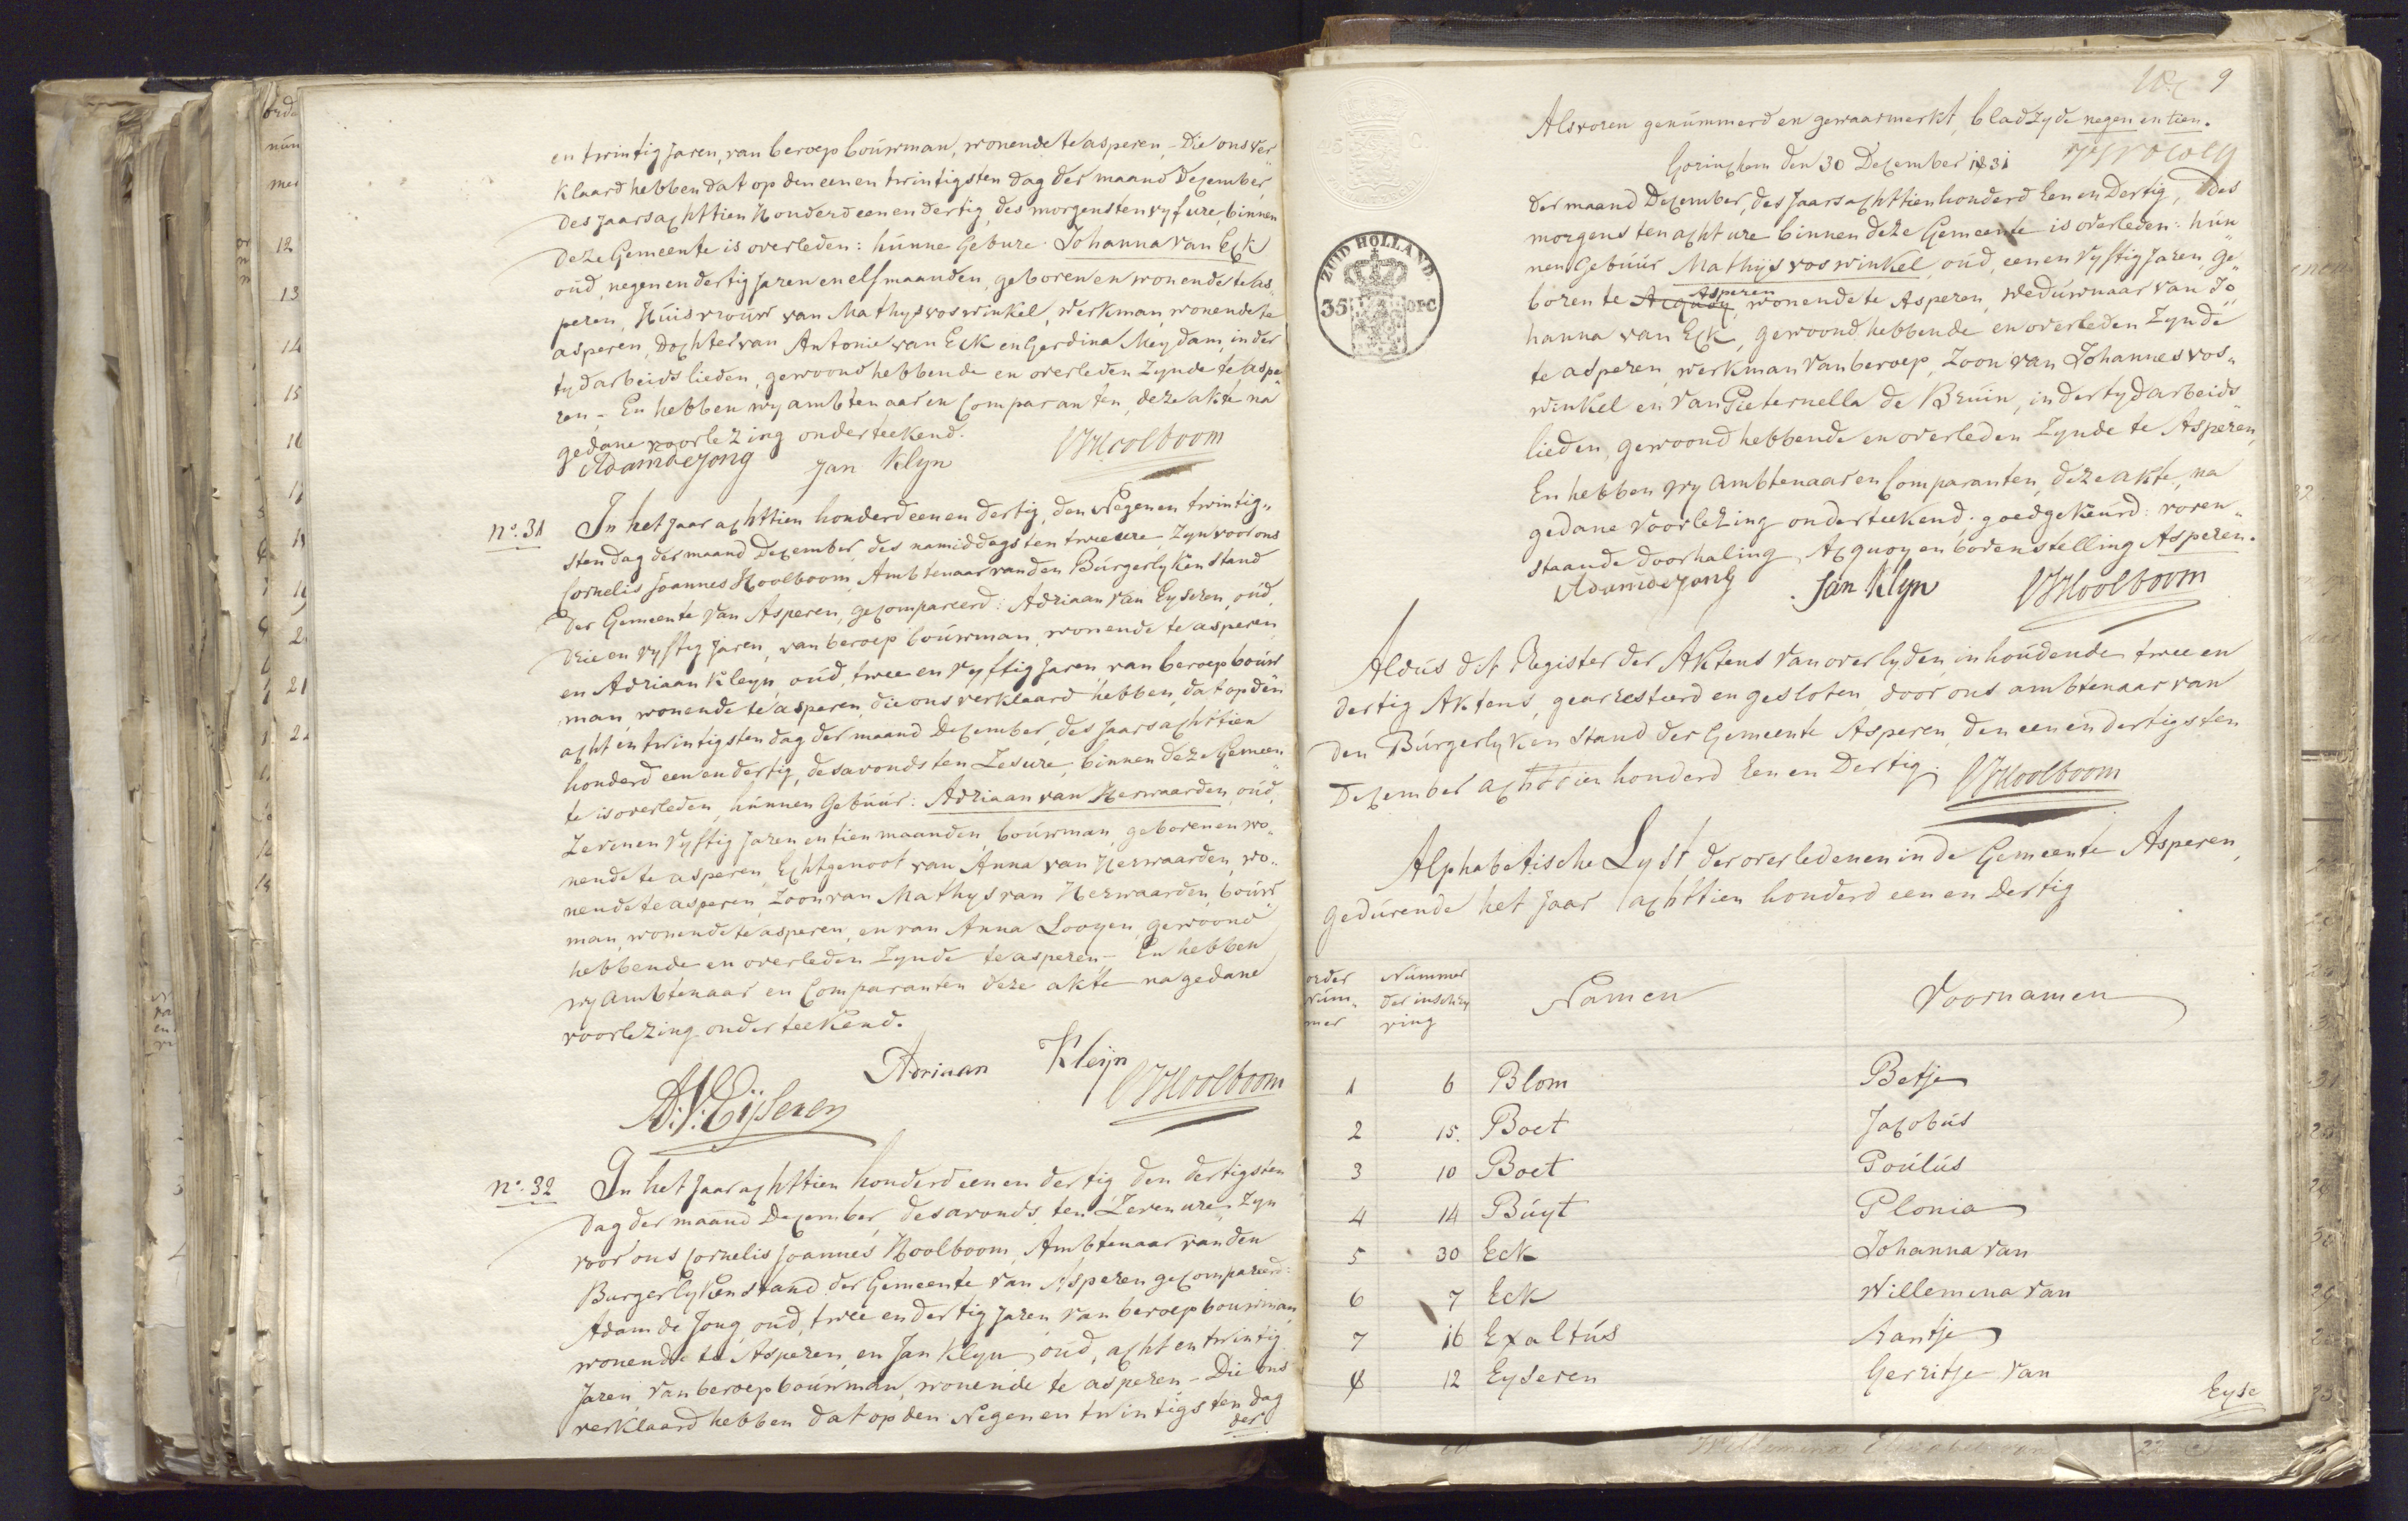 en twintig Jaren, van beroep bouwman, wonende te asperen, - Die ons ver„
klaard hebben dat op den een en twintigsten dag der maand December,
des Jaars achttien Honderd een en dertig, des morgens ten vyf ure, binnen
deze Gemeente is overleden: hunne Gebure: Johanna van Eck
oud, negen en dertig Jaren en elf maanden, geboren en wonende te As„
peren, Huisvrouw van Mathys voswinkel, werkman, wonende te
asperen, Dochter van Antonie van Eck en Gerdina Meydam, in der
tyd arbeidslieden, gewoond hebbende en overleden Zynde te Aspe„
ren. - En hebben wy ambtenaar en Comparanten, deze akte na
gedane voorlezing onderteekend.
Adam de Jong Jan Klyn CJHoolboom
No. 31 In het Jaar achttien honderd een en dertig, den Negen en twintig„
sten dag der maand December, des namiddags ten twee ure, Zyn voor ons
Cornelis Joannes Hoolboom, Ambtenaar van den Burgerlyken Stand
der Gemeente van Asperen, gecompareerd: Adriaan van Eyseren, oud,
drie en vyftig Jaren, van beroep bouwman, wonende te asperen
en Adriaan Kleyn, oud, twee en vyftig Jaren, van beroep bouw„
man, wonende te asperen, die ons verklaard hebben, dat op den
acht en twintigsten dag der maand December, des Jaars achttien
honderd een en dertig, des avonds ten Zes ure, binnen deze Gemeen„
te is overleden, hunnen Gebuur: Adriaan van Herwaarden, oud,
Zeven en Vyftig Jaren en tien maanden, bouwman, geboren en wo„
nende te asperen, Echtgenoot van Anna van Herwaarden, wo„
nende te asperen, Zoon van Mathys van Herwaarden, bouw„
man, wonende te asperen, en van Anna Looyen, gewoond
hebbende en overleden Zynde te asperen. - En hebben
wy Ambtenaar en Comparanten deze akte na gedane
voorlezing onderteekend.
Adriaan Kleijn
A. V. Eijseren CJHoolboom
No. 32 In het Jaar achttien honderd een en dertig den dertigsten
dag der maand December, des avonds ten Zeven ure, Zyn
voor ons Cornelis Joannes Hoolboom, Ambtenaar van den
Burgerlyken Stand der Gemeente van Asperen gecompareerd:
Adam de Jong, oud, twee en dertig Jaren, van beroep bouwman,
wonende te Asperen, en Jan Klyn, oud, acht en twintig
Jaren, van beroep bouwman, wonende te asperen. - Die ons
verklaard hebben dat op den Negen en twintigsten dag
der
9
Als voren genummerd en gewaarmerkt, bladzyde negen en tien.
Gorinchem den 30 December 1831
der maand December, des Jaars achttien honderd Een en Dertig, des
morgens ten acht ure binnen deze Gemeente is overleden: hun„
nen Gebuur Mathijs voswinkel, oud, een en vyftig Jaren, ge„
boren te Acquoy, Asperen wonende te Asperen, weduwnaar van Jo„
hanna van Eck, gewoond hebbende en overleden Zynde
te asperen, werkman van beroep, Zoon van Johannes vos„
winkel en van Pieternella de Bruin, in der tyd arbeids„
lieden, gewoond hebbende en overleden Zynde te Asperen,
En hebben wy Ambtenaar en Comparanten, deze akte, na
gedane voorlezing onderteekend; goedgekeurd: voren„
staande doorhaling, Acquoy en bovenstelling Asperen.
Adam de Jong Jan Klyn CJHoolboom
ZUID HOLLAND.
35 OPC
Aldus dit Register der Aktens van overlyden, inhoudende twee en
dertig Aktens, gearresteerd en gesloten, door ons ambtenaar van
den Burgerlyken Stand der Gemeente Asperen, den een en dertigsten
December achttien honderd Een en Dertig. CJHoolboom
Alphabetische Lyst der overledenen in de Gemeente Asperen,
gedurende het Jaar achttien honderd een en Dertig
order num„ mer Nummer der inschry ving Namen Voornamen
1 6 Blom Betje
2 15. Boet Jacobus
3 10 Boet Poulus
4 14 Buyt Plonia
5 30 Eck Johanna van
6 7 Eck Willemina van
7 16 Exaltus Aantje
8 12 Eyseren Gerritje van
Eyse